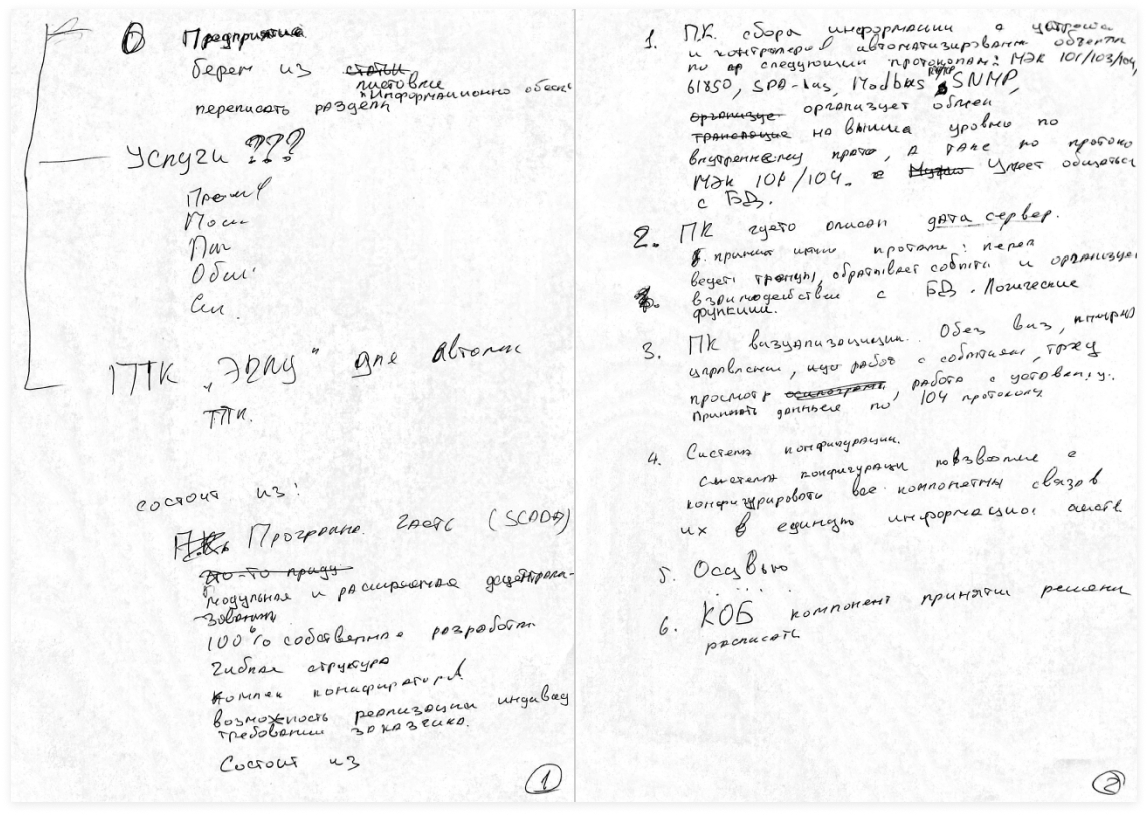 О Предприятие
берем из статьи
листовки
"Информационно обесп
переписать разделы
Услуги ???
Обсл.
ПТК „ЭРПУ" для автом
ТПК.
состоит из:
Програмно. часть (SCADA)
Это-то приду
модульная и расширяемая децентрали-
зованны
100% собственная разработка
Гибкая структура
Комплек конфигураторов
возможность реализации индивид
требований заказчика.
Состоит из
1
1. ПК. сбора информации с устройств
и контролеров автоматизирован объекта
по следующим протоколам: МЭК 101/103/104,
61850, SPA-bus, Modbus SNMP,
организуе организует обмен
трансляцию на вышша уровни по
внутреннему прото, а таке по протоко
МЭК 101/104. Умеет общаться
с БД.
2. ПК гдето описан дата сервер.
ведет тренды, обратывает события и организует
взаимодействие с БД. Логические
функции.
3. ПК визуализации. Обес виз,
управлени, работ с событиями,
просмотр осилограм, работа с уставками.
Принимать данные по 104 протоколу.
4. Система конфигурации.
Система конфигураци позволяе
конфигурировать все компоненты связав
их в единую информацион
5. Осцвью
. . . .
6. КОБ компонент приняти решени
расписать
2